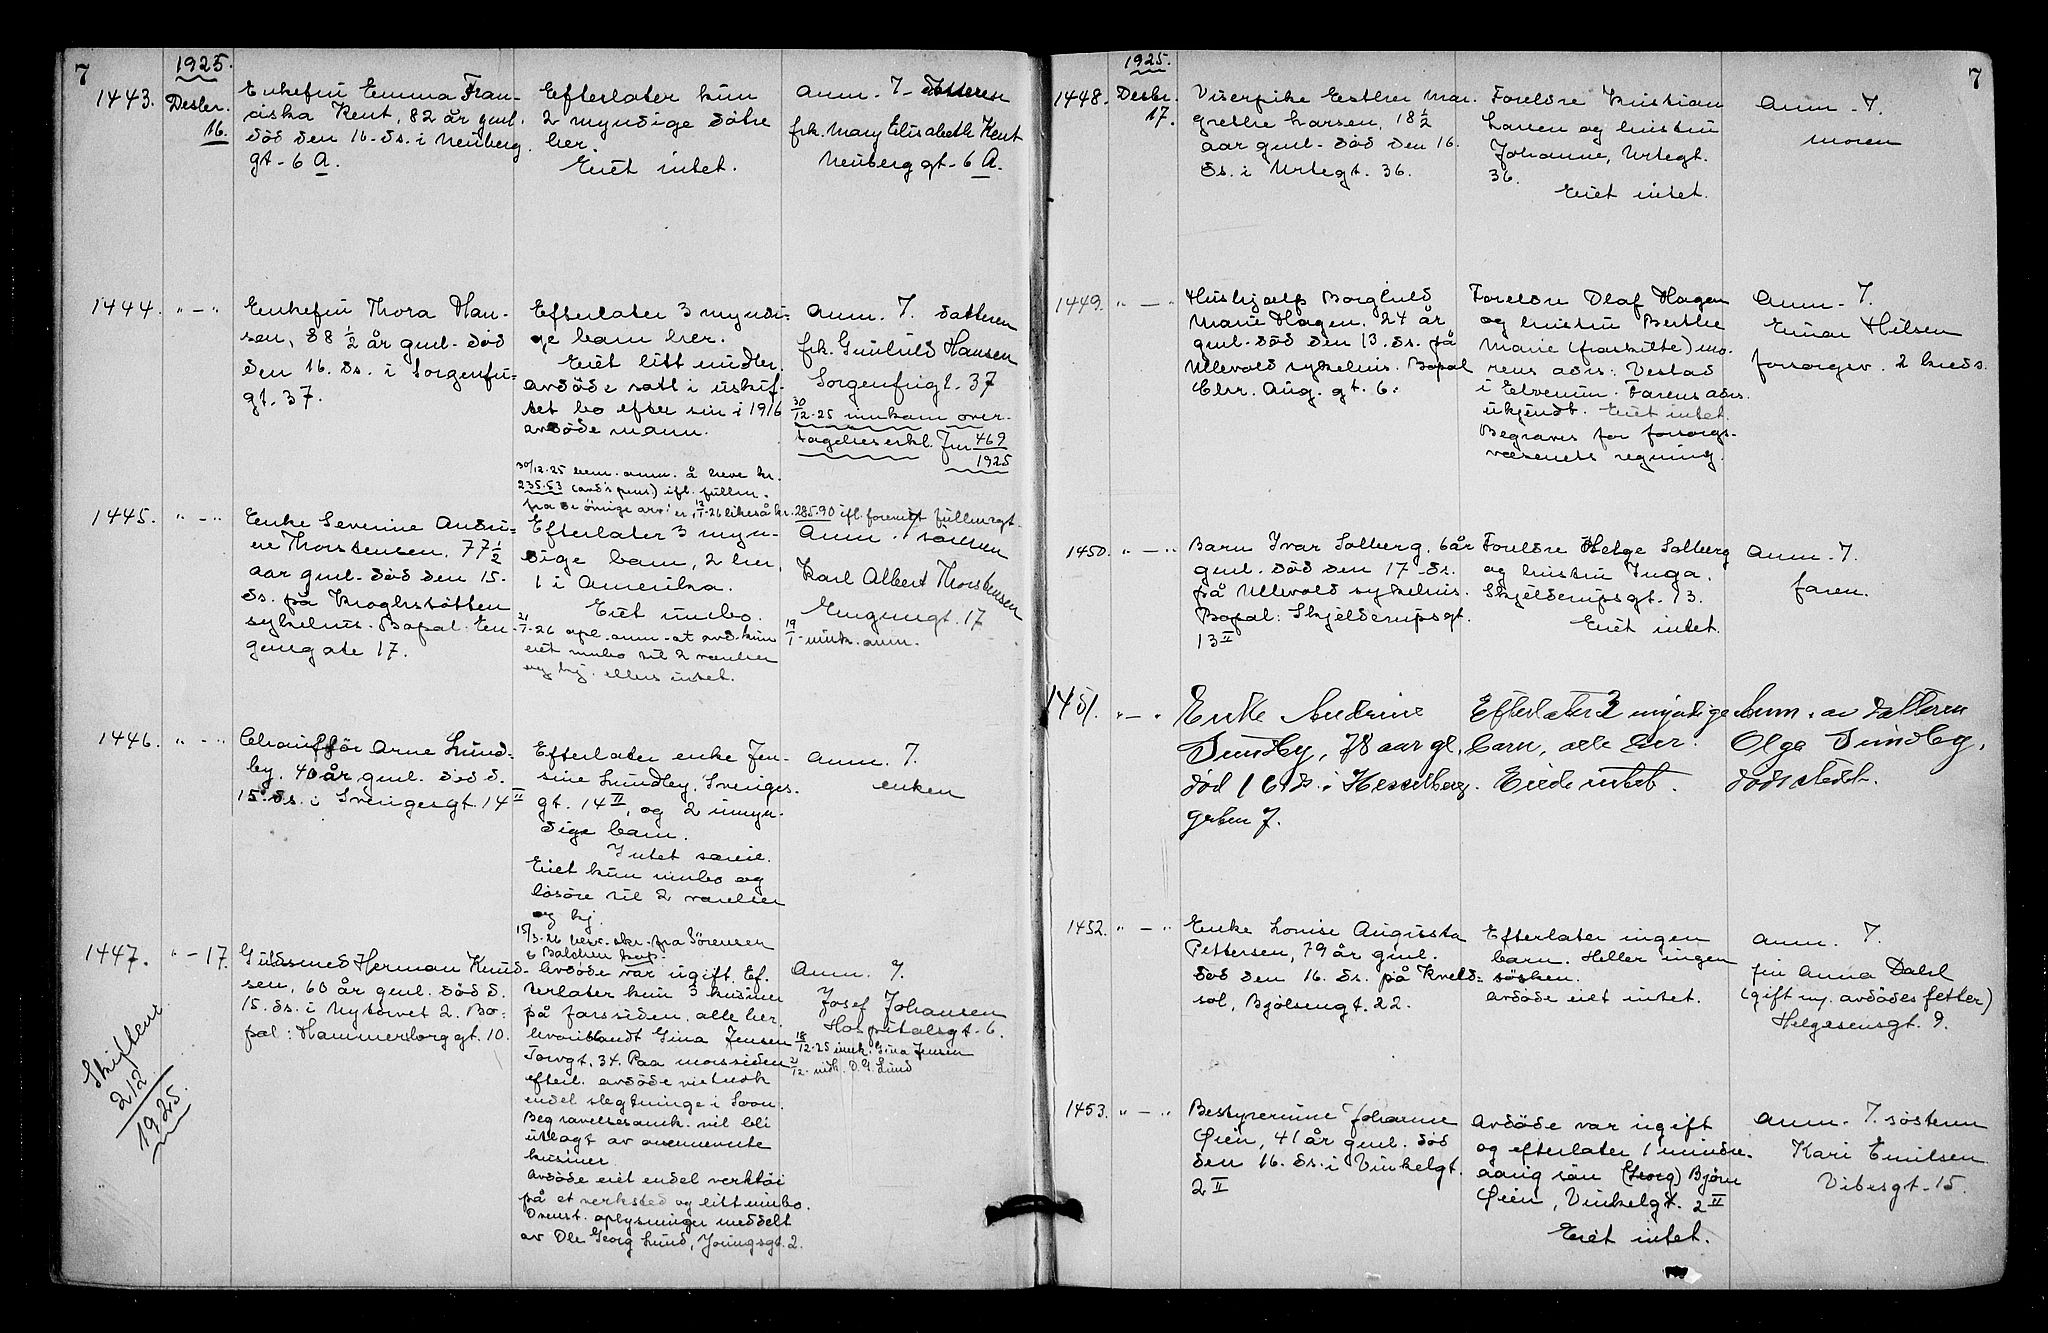 7
1925.
1443.
Desbr.
16.
Enkefru Emma Fran-
ciska Kent, 82 år gml.
död den 16. ds. i Neuberg
gt. 6 A.
Efterlater kun
2 myndige døtre
her.
Eiet intet.
Anm. 7. datteren
frk. Mary Elisabeth Kent
Neuberg gt. 6 A.
1444.
" — "
Enkefru Thora Han-
sen, 88 1/2 år gml. död
den 16. ds. i Sorgenfri=
gt. 37.
Efterlater 3 myndi=
ge barn her.
Eiet litt midler.
Avdöde satt i uskif-
tet bo efter sin i 1916
avdöde mann.
30/12-25 bem. anm. å heve kr.
235.53 (avd's pens) ifl. fullm.
fra de övrige arv.er, 12/1-26 likeså kr. 285.90 ifl. forevist fullmagt.
Anm. 7. datteren
frk. Gunhild Hansen
Sorgenfrigt. 37
30/12-25 innkom over-
tagelseserkl. Jnr 469
1925
1445.
" — "
Enke Severine Andri=
ne Thorstensen, 77 1/2
aar gml. död den 15.
ds. på Kroghstötten
sykehus. Bopæl: En-
gengate 17.
Efterlater 3 myn-
dige barn, 2 her,
1 i Amerika.
Eiet innbo.
21/1-26 opl. anm. at avd. kun
eiet innbo til 2 værelser
og kj. ellers intet.
Anm. 7 sönnen
Karl Albert Thorstensen
Engengt. 17
19/1- innk. anm.
1446.
" — "
Chaufför Arne Lund-
by, 40 år gml. död d.
15. ds. i Sverigesgt. 14 II
Efterlater enke Jen-
sine Lundby, Sveriges-
gt. 14 II, og 2 umyn-
dige barn.
Intet særeie.
Eiet kun innbo og
lösöre til 2 værelser
og kj.
15/3-26 besv. skr. fra Sörensen
& Balchen
Anm. 7.
enken
1447.
" — 17.
Skiftenr
212
1925.
Guldsmed Herman Knud-
sen, 60 år gml. död d.
15. ds. i Nytorvet 2. Bo-
pæl: Hammersborggt. 10.
Avdöde var ugift. Ef-
terlater kun 3 kusiner
på farssiden, alle her,
hvoriblandt Gina Jensen
Torvgt. 34. Paa morssiden
efterl. avdöde vistnok
endel slegtninge i Soon.
Begravelsesomk. vil bli
utlagt av ovennevnte
kusiner.
Avdöde eiet endel verktöi
på et verksted og litt innbo.
Ovenst. oplysninger meddelt
av Ole Georg Lund, Youngsgt. 2.
Anm. 7.
Josef Johansen
Hospitalsgt. 6.
18/12-25 innk. Gina Jensen
21/12- innk. O. G. Lund
7
1925.
1448.
Desbr.
17.
Viserpike Esther Mar-
grethe Larsen, 18 1/2
aar gml. död den 16.
ds. i Urtegt. 36.
Foreldre Kristian
Larsen og hustru
Johanne, Urtegt.
36.
Eiet intet.
Anm. 7.
moren
1449.
" — "
Hushjælp Borghild
Marie Hagen, 24 år
gml. död den 13. ds. på
Ullevold sykehus. Bopæl
Chr. Aug. gt. 6.
Foreldre Olaf Hagen
og hustru Berthe
Marie (fraskilte) mo-
rens adrs: Vestad
i Elverum. Farens adrs.
ukjendt. Eiet intet.
Begraves for forsorgs-
væsenets regning.
Anm. 7.
Einar Hilsen
forsorgsv. 2 kreds.
1450.
" — "
Barn Ivar Solberg, 6 år
gml. död den 17. ds.
på Ullevold sykehus.
Bopæl: Skjelderupsgt.
13 II
Foreldre Helge Solberg
og hustru Inga,
Skjelderupsgt. 13.
Eiet intet.
Anm. 7.
faren.
1451.
" — "
Enke Andrine
Sundby, 78 aar gl.
död 16 ds. i Hesselberg-
gaten 7.
Efterlater 3 myndige
barn, alle her.
Eiede intet.
Anm. av datteren
Olga Sundby,
dödsstedet.
1452.
" — "
Enke Lovise Augusta
Pettersen, 79 år gml.
död den 16. ds. på Kveld-
sol, Bjölsengt. 22.
Efterlater ingen
barn. Heller ingen
søsken.
Avdöde eiet intet.
Anm. 7.
fru Anna Dahl
(gift m. avdödes fetter)
Helgesensgt. 9.
1453.
" — "
Bestyrerinne Johanne
Öien, 41 år gml. död
den 16. ds. i Vinkelgt.
2 II
Avdöde var ugift
og efterlater 1 mindre-
aarig sön (Georg) Björn
Öien, Vinkelgt. 2 II
Eiet intet.
Anm. 7. søsteren
Kari Emilsen
Vibesgt. 15.